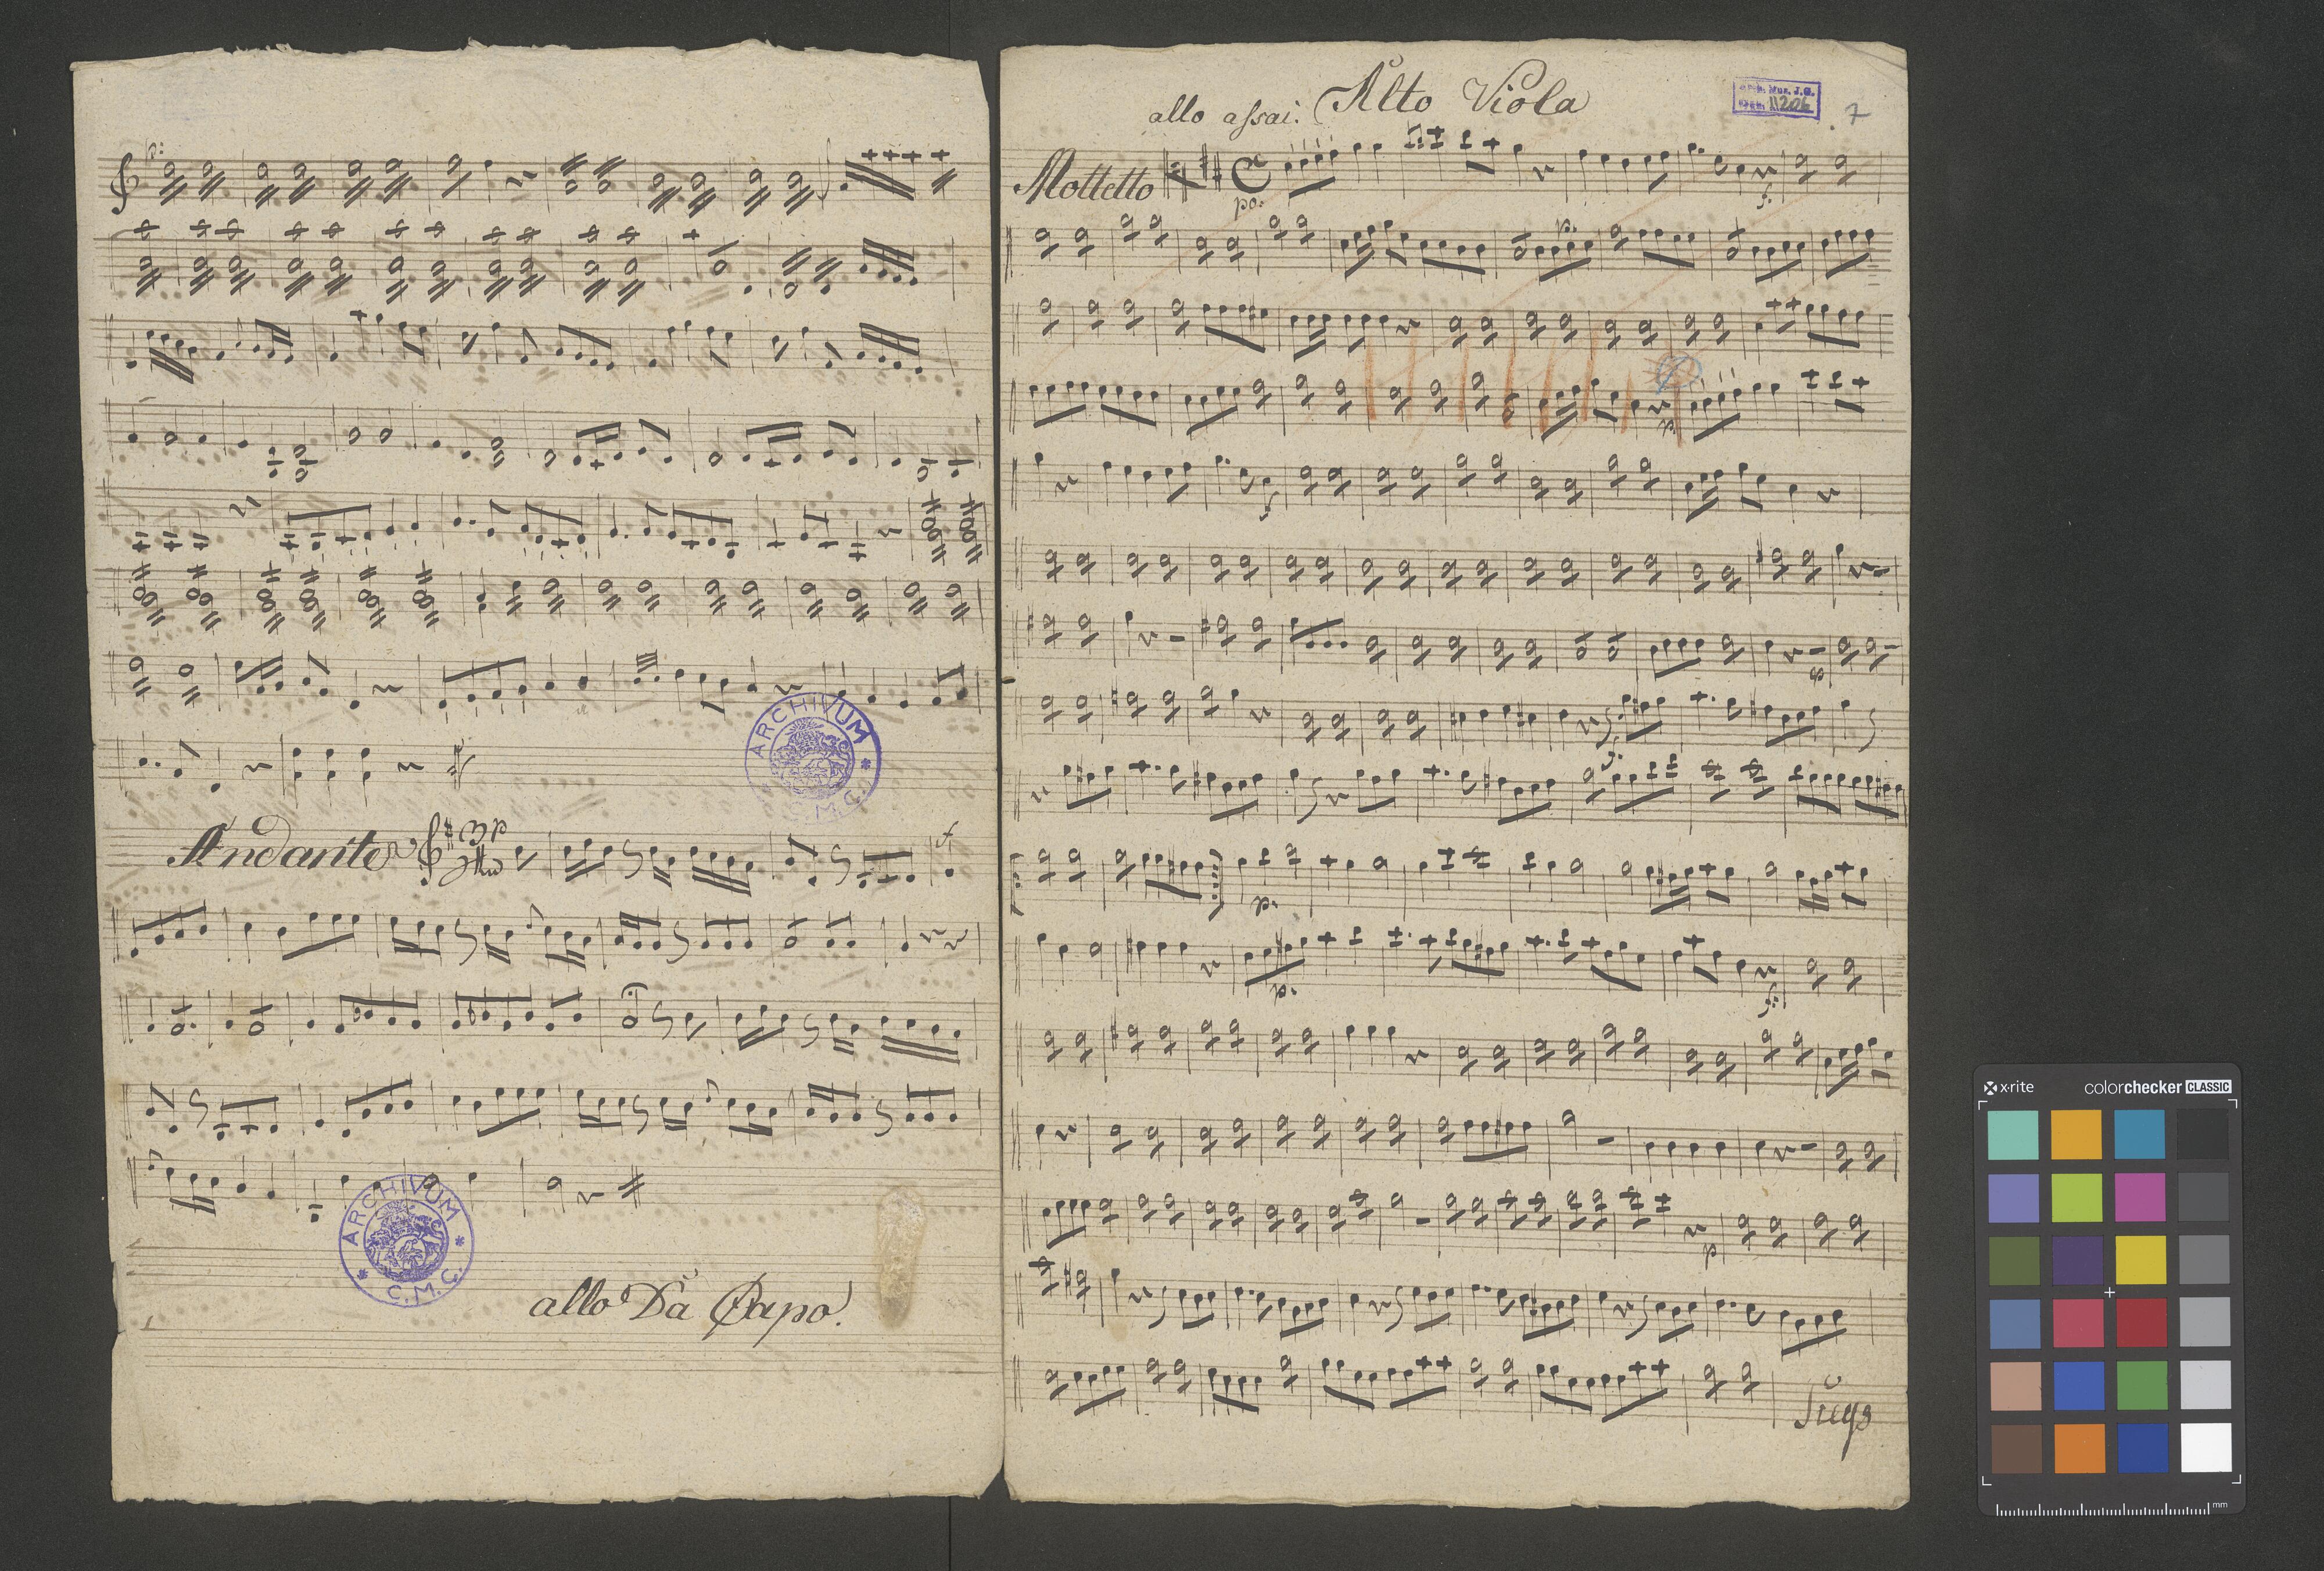 p:
Andante
3
p
f
ARCHIVUM
C. M. Ç.
ARCHIVUM
C. M. Ç.
allo Da Capo.
allo assai. Alto Viola
Mus. J.G.
11206
7
Mottetto
po:
f.
p.
p
f
p
f.
p.
p.
f.
p
x-rite colorchecker CLASSIC
mm